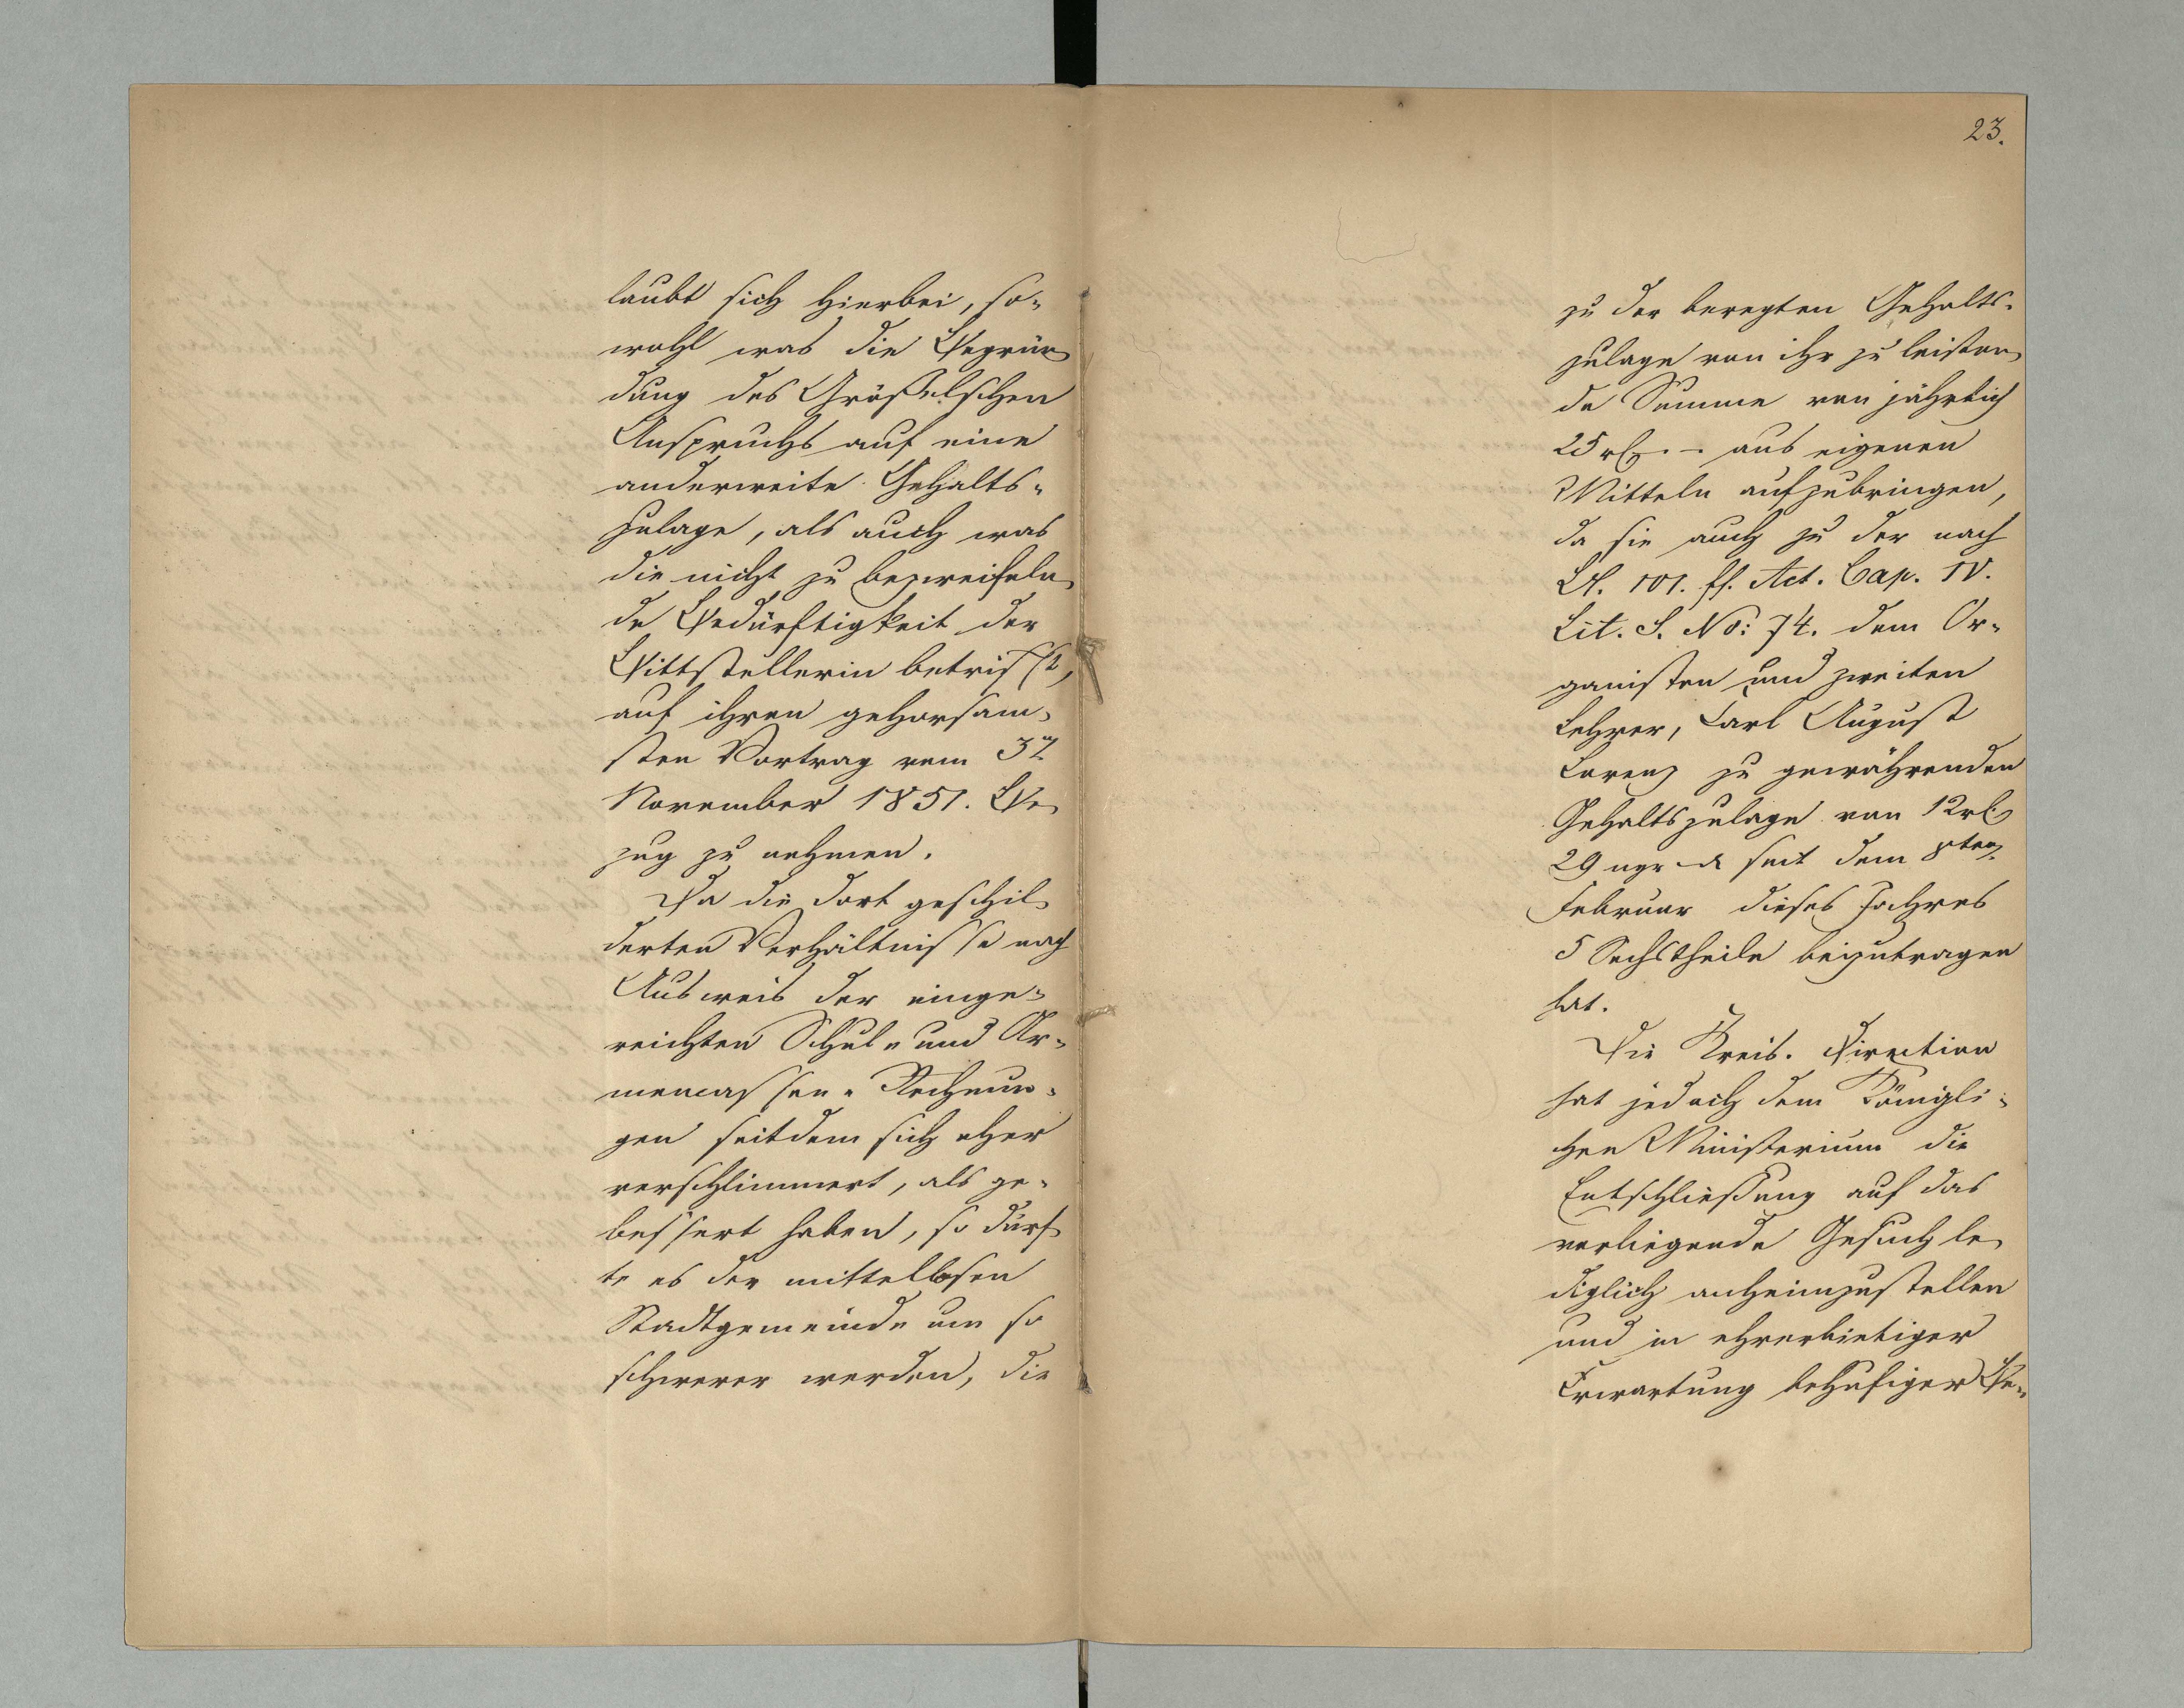 laubt sich hierbei, so-
wohl was die Begrün
dung des Größelschen
Anspruchs auf eine
anderweite Gehalts-
zulage, als auch was
die nicht zu bezweifeln
de Bedürftigkeit der
Bittstellerin betrifft,
auf ihren gehorsam-
sten Vortrag vom
November 1851. Be
zug zu nehmen.
Da die dort geschil
derten Verhältnisse nach
Ausweis der einge-
reichten Schul- und Ar-
mencassen-Rechnun-
gen seitdem sich eher
verschlimmert, als ge-
bessert haben, so dürf
te es der mittellosen
Stadtgemeinde um so
schwerer werden, die
23.
zu der beregten Gehalts-
zulage von ihr zu leisten
de Summe von jährlich
25 rℓ. - aus eigenen
Mitteln aufzubringen,
da sie auch zu der nach
Bl. 101. ff. Act. Cap. IV.
Lit. S. No: 74. dem Or-
ganisten und zweiten
Lehrer, Carl August
Lorenz zu gewährenden
Gehaltszulage von 12 rℓ
29 ngr - seit dem 8ten
Februar dieses Jahres
5 Sechstheile beizutragen
hat.
Die Kreis-Direction
hat jedoch dem Königli-
chen Ministerium die
Entschließung auf das
vorliegende Gesuch le
diglich anheimzustellen
und in ehrerbietiger
Erwartung behufiger Be-